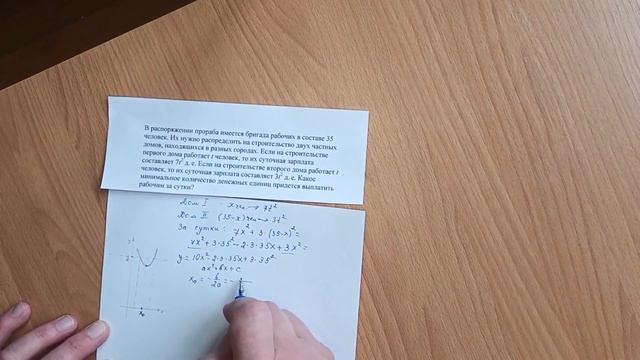 В распоряжении прораба имеется бригада рабочих в составе 35
человек. Их нужно распределить на строительство двух частных
домов, находящихся в разных городах. Если на строительстве
первого дома работает t человек, то их суточная зарплата
составляет 7t² д. е. Если на строительстве второго дома работает t
человек, то их суточная зарплата составляет 3t² д. е. Какое
минимальное количество денежных единиц придется выплатить
рабочим за сутки?
Дом I x чел → 7t²
Дом II (35-x) чел → 3t²
За сутки: 7x² + 3 (35-x)² =
7x² + 3·35² - 2·3·35x + 3x² =
y = 10x² - 2·3·35x + 3·35²
ax² + bx + c
x₀ = - b/2a = -
x₀